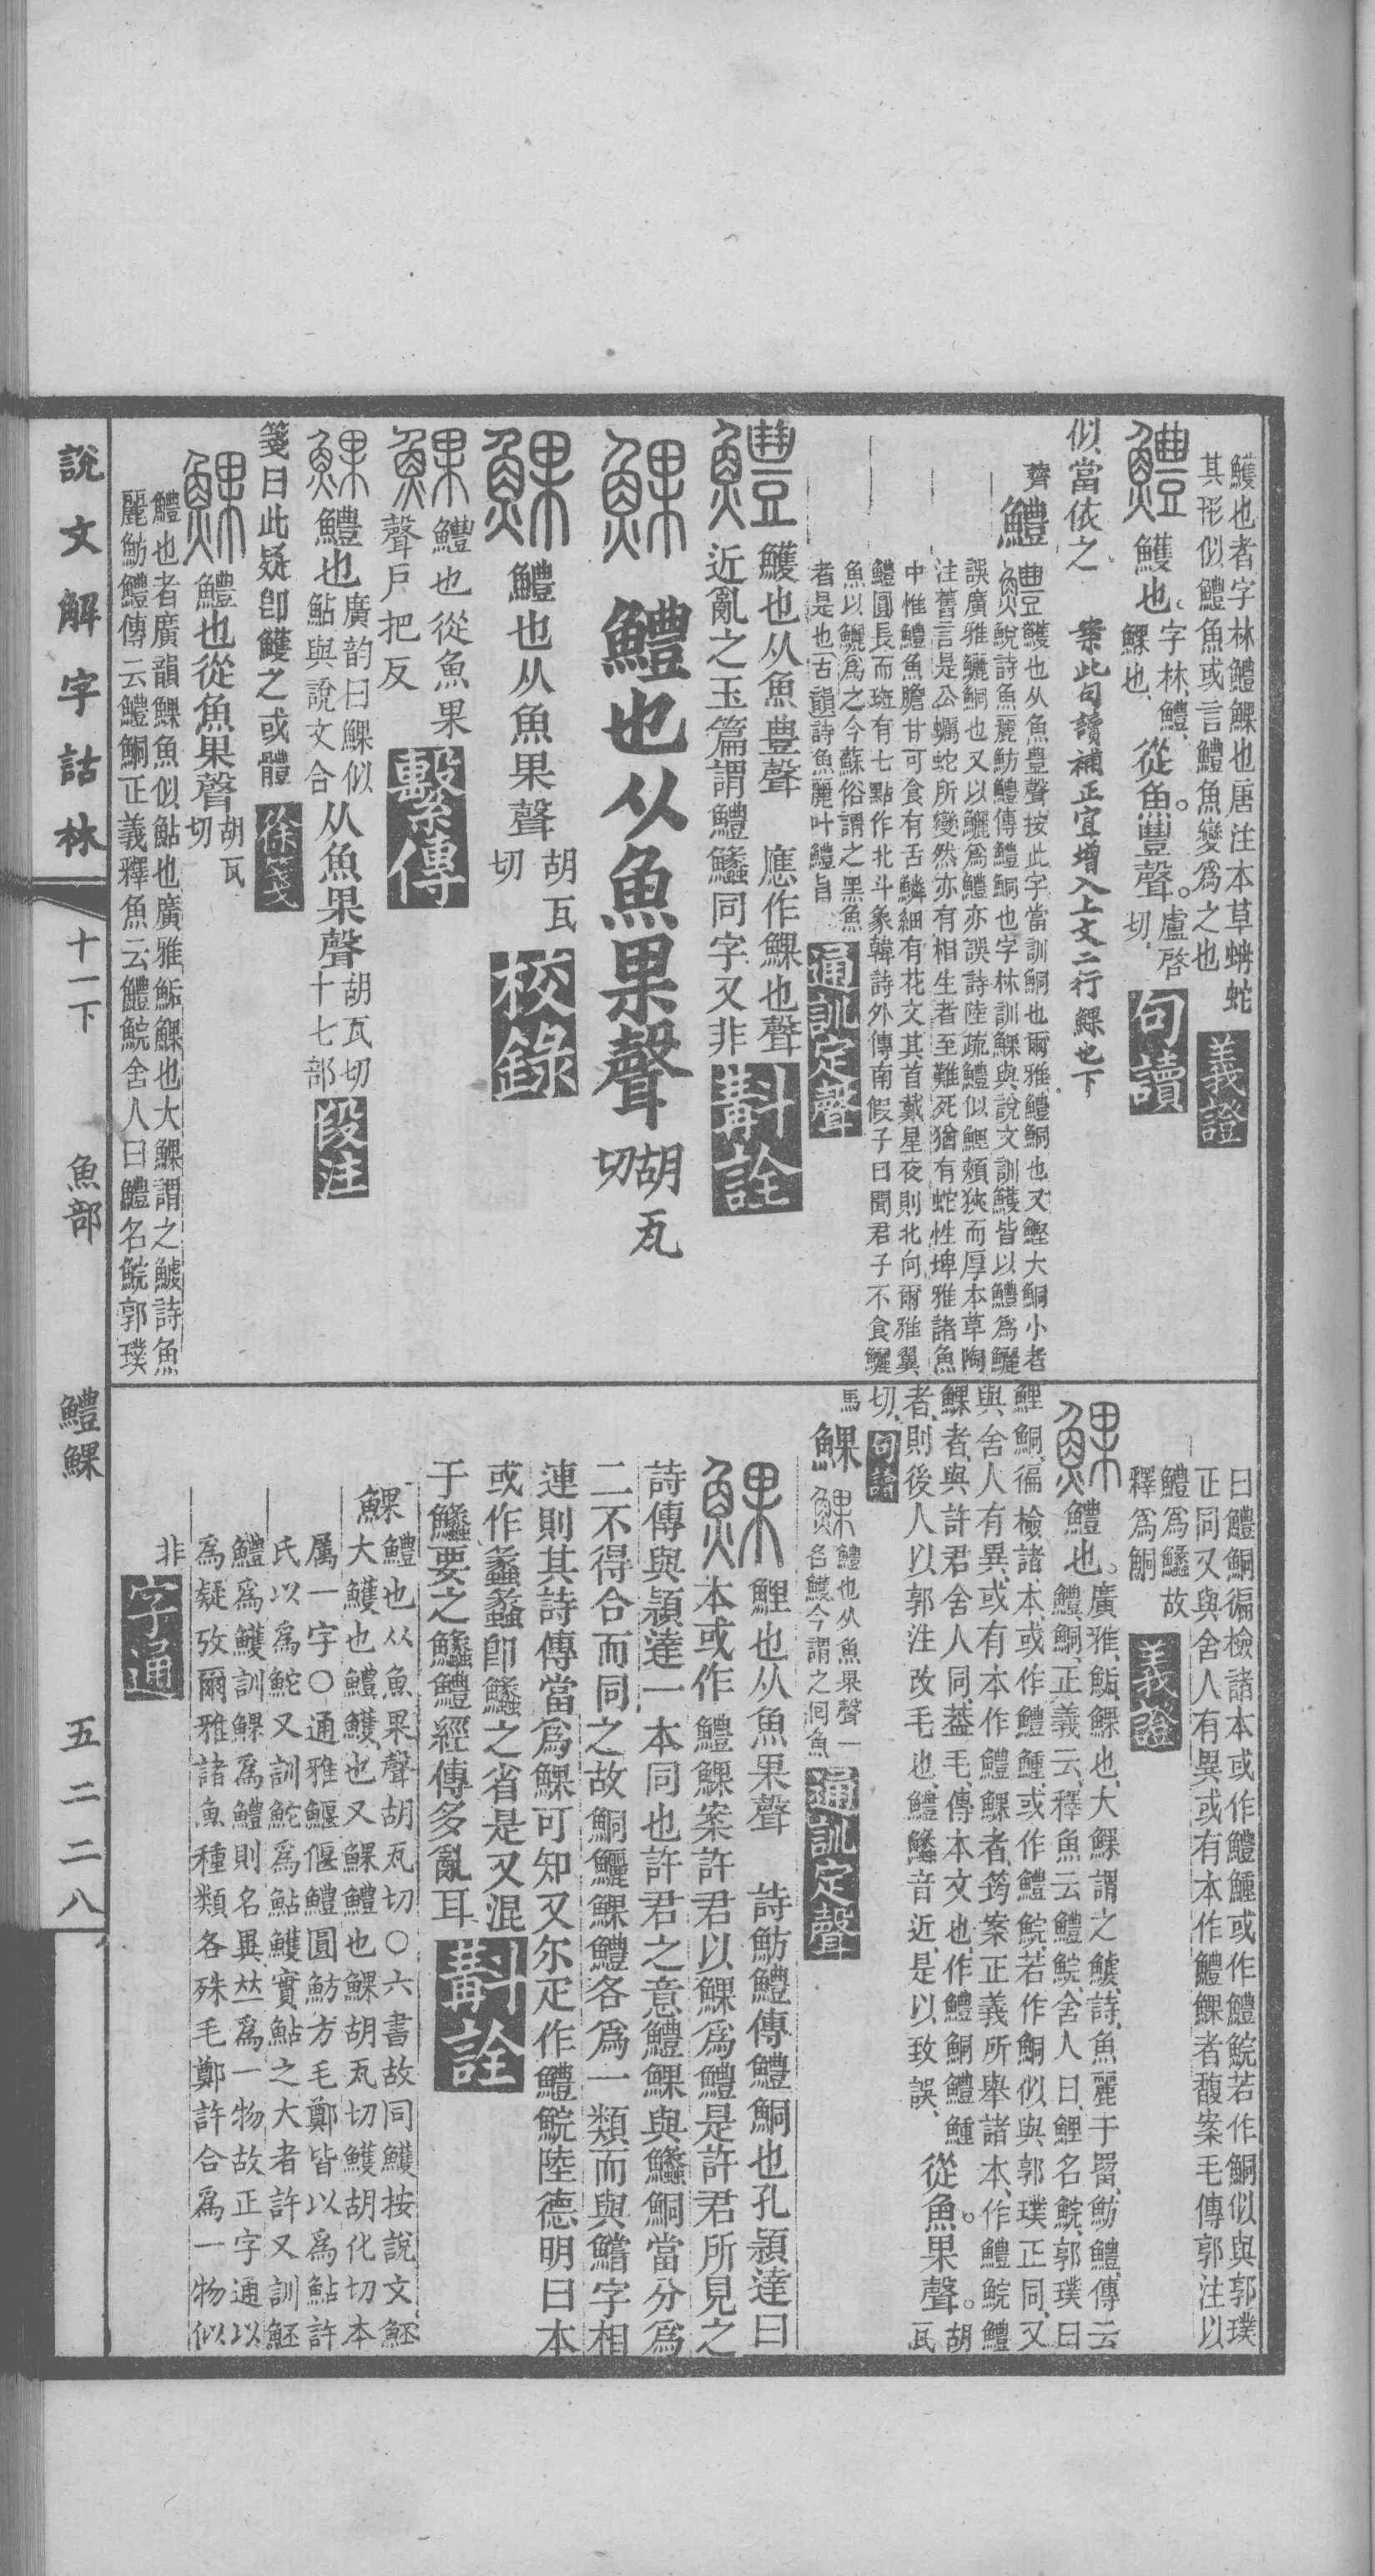 鱯也者字林鱧鰥也唐注本草蚺蛇
其形似鱧魚或言鱧魚變爲之也
義證
鱧 鱯也字林鱧
鰥也
從魚豊聲盧啓切
句讀
似當依之 案此句讀補正宜增入上文二行鰥也下
齊 鱧 鱧鱯也从魚豊聲按此字當訓鮦也爾雅鱧鮦也又鰹大鮦小者
鮵詩魚麗魴鱧傳鱧鮦也字林訓鰥與說文訓鱯皆以鱧爲鱺
誤廣雅鱺鮦也又以鱺爲鱧亦誤詩陸疏鱧似鯉頰狹而厚本草陶
注舊言是公蠣蛇所變然亦有相生者至難死猶有蛇性埤雅諸魚
中惟鱧魚膽甘可食有舌鱗細有花文其首戴星夜則北向爾雅翼
鱧圓長而斑有七點作北斗象韓詩外傳南假子曰聞君子不食鱺
魚以鱺爲之今蘇俗謂之黑魚
者是也古韻詩魚麗叶鱧旨
通訓定聲
鱧 鱯也从魚豊聲 應作鰥也聲
近亂之玉篇謂鱧䲙同字又非
斠詮
鰥 鱧也从魚果聲胡瓦切
鰥 鱧也从魚果聲胡瓦切
校錄
鰥 鱧也從魚果
聲戶把反
繫傳
鰥 鱧也廣韵曰鰥似
鮎與說文合
从魚果聲胡瓦切
十七部
段注
箋曰此疑卽鱯之或體
徐箋
鰥 鱧也從魚果聲胡瓦切
鱧也者廣韻鰥魚似鮎也廣雅鮜鰥也大鰥謂之鯱詩魚
麗魴鱧傳云鱧鮦正義釋魚云鱧鯇舍人曰鱧名鯇郭璞
曰鱧鮦徧檢諸本或作鱧鯉或作鱧鯇若作鮦似與郭璞
正同又與舍人有異或有本作鱧鰥者馥案毛傳郭注以
鱧爲䲙故
釋爲鮦
義證
鰥 鱧也廣雅鮜鰥也大鰥謂之鯱詩魚麗于罶魴鱧傳云
鱧鮦正義云釋魚云鱧鯇舍人曰鯉名鯇郭璞曰
鯉鮦徧檢諸本或作鱧鯉或作鱧鯇若作鮦似與郭璞正同又
與舍人有異或有本作鱧鰥者筠案正義所舉諸本作鱧鯇鱧
鰥者與許君舍人同蓋毛傳本文也作鱧鮦鱧鯉
者則後人以郭注改毛也鱧䲙音近是以致誤
從魚果聲胡瓦
切
句讀
馬 鰥 鰥鱧也从魚果聲一
名鱯今謂之回魚
通訓定聲
鰥 鯉也从魚果聲 詩魴鱧傳鱧鮦也孔穎達曰
本或作鱧鰥案許君以鰥爲鱧是許君所見之
詩傳與穎達一本同也許君之意鱧鰥與䲙鮦當分爲
二不得合而同之故鮦鱺鰥鱧各爲一類而與鱨字相
連則其詩傳當爲鰥可知又尔疋作鱧鯇陸德明曰本
或作蠡蠡卽䲙之省是又混
于䲙要之䲙鱧經傳多亂耳
斠詮
鰥 鱧也从魚果聲胡瓦切○六書故同鱯按說文魾
大鱯也鱧鱯也又鰥鱧也鰥胡瓦切鱯胡化切本
屬一字○通雅鰋偃鱧圓魴方毛鄭皆以爲鮎許
氏以爲鮀又訓鮀爲鮎鱯實鮎之大者許又訓魾
鱧爲鱯訓鰥爲鱧則名異𠀤爲一物故正字通以
爲疑攷爾雅諸魚種類各殊毛鄭許合爲一物似
非
字通
說文解字詁林 十一下 魚部 鱧鰥 五二二八